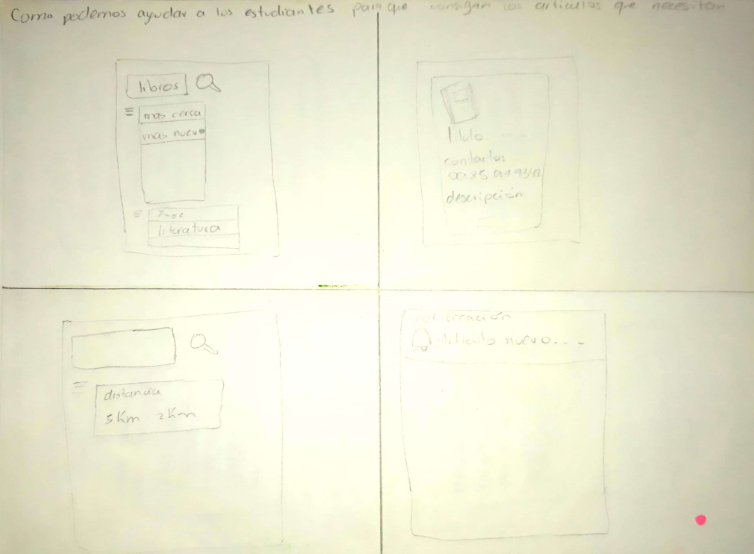 Como podemos ayudar a los estudiantes para que consigan los articulos que necesitan
libros
mas cerca
mas nuevo
literatura
titulo
contactos
descripción
distancia
5 Km 2 Km
articulo nuevo...